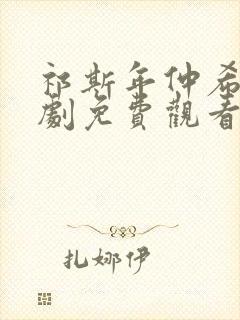 祁斯年仲希
劇免費觀看
扎娜伊